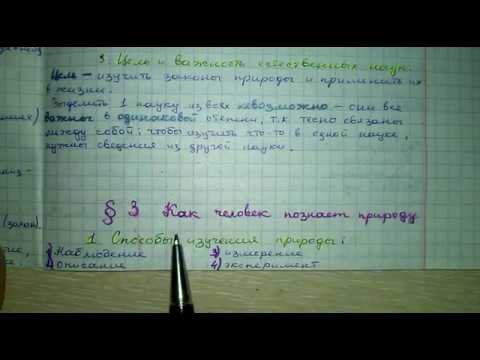 3. Цель и важность естественных наук.
Цель – изучить законы природы и применить их
в жизнее.
Выделить 1 науку из всех невозможно – они все
важны в одинаковой степени, т.к тесно связаны
между собой: чтобы изучить что-то в одной науке,
нужны сведения из другой науки.
§ 3 Как человек познает природу
1 Способы изучения природы:
1) Наблюдение 3) измерение
2) Описание 4) эксперимент
(закон).